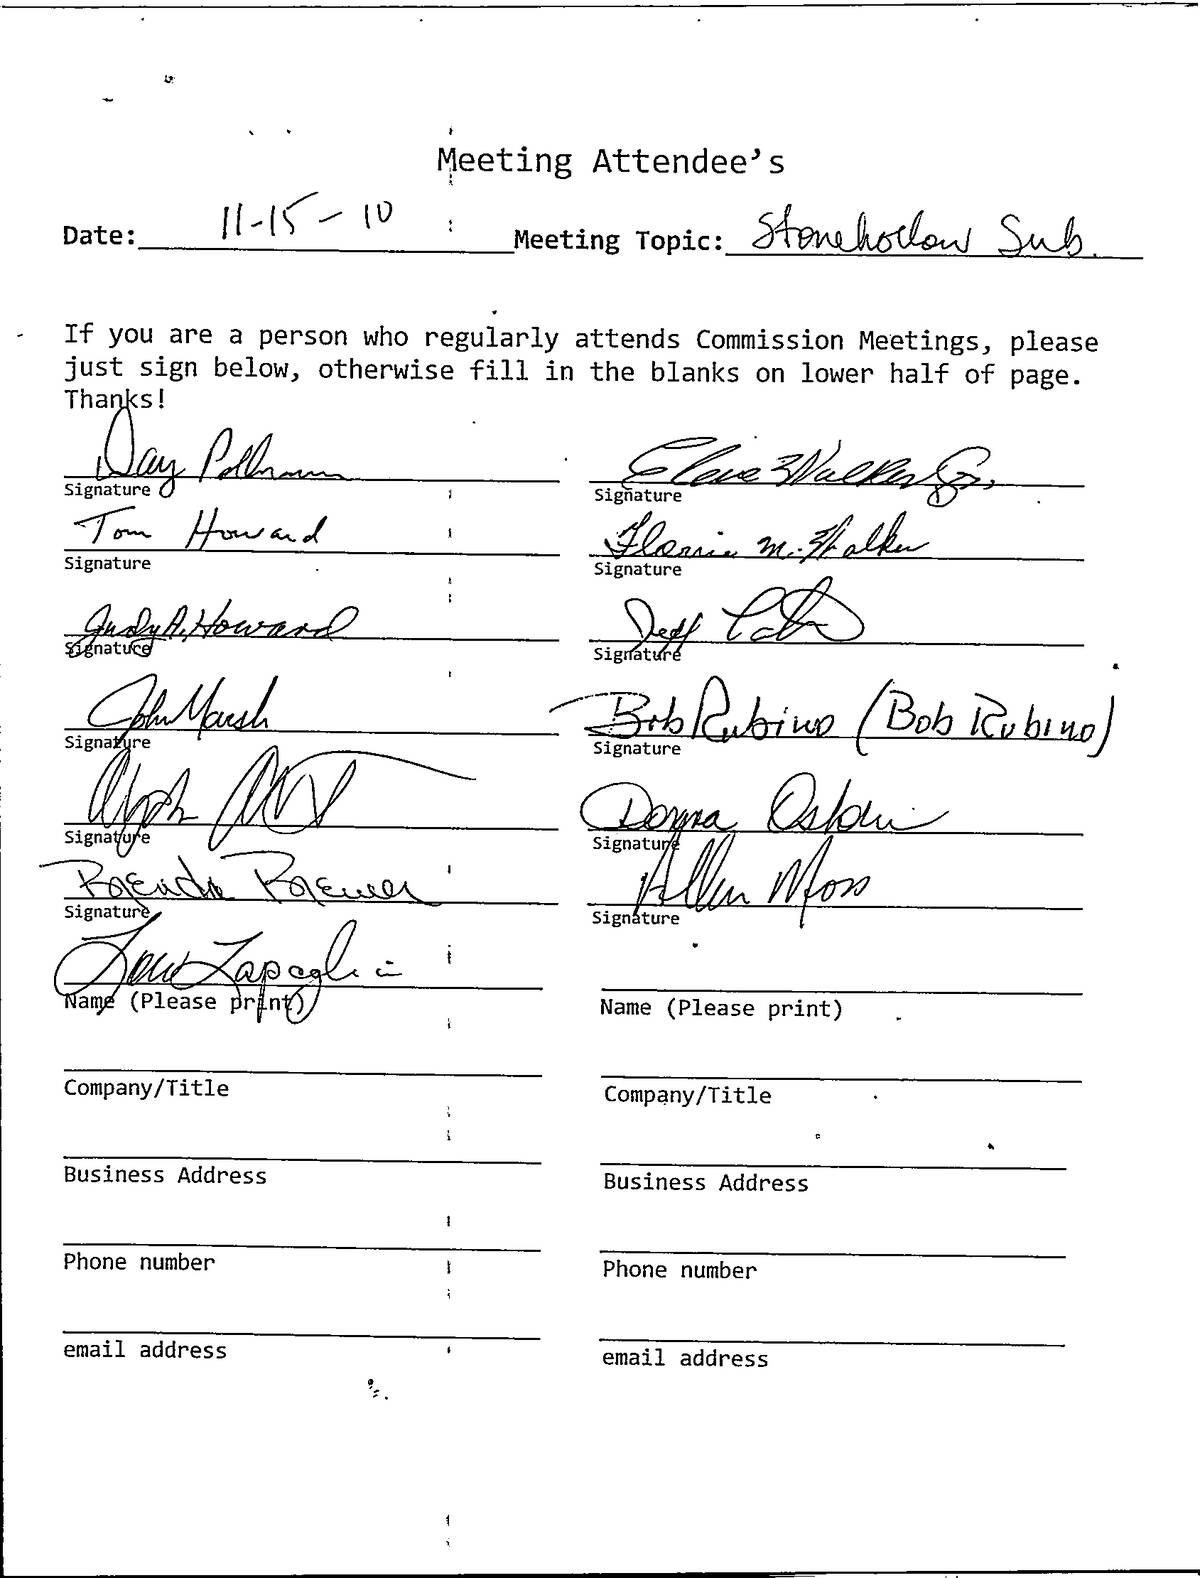 Meeting Attendee's
Date: 11-15-10 Meeting Topic: Stonehollow Sub.
If you are a person who regularly attends Commission Meetings, please
just sign below, otherwise fill in the blanks on lower half of page.
Thanks!
Walker Jr.
Signature Signature
Tom Howard Florrie M. Walker
Signature Signature
Judy A. Howard Jeff
Signature Signature
John Marsh Bob Rubino (Bob Rubino)
Signature Signature
Donna
Signature Signature
Brenda Brewer Allen Moss
Signature Signature
Lapaglia
Name (Please print) Name (Please print)
Company/Title Company/Title
Business Address Business Address
Phone number Phone number
email address email address